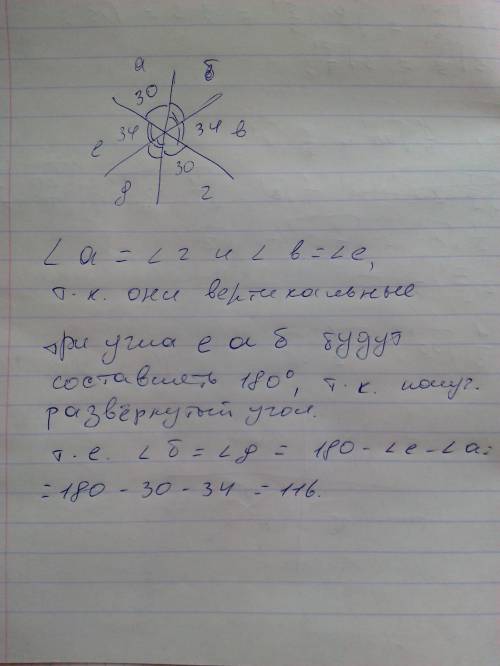 а б
30
34 34 в
е
30
д г
∠ а = ∠ г и ∠ в = ∠ е,
т.к. они вертикальные
три угла е а б будут
составлять 180°, т.к. получ.
развёрнутый угол.
т.е. ∠ б = ∠ д = 180 - ∠ е - ∠ а =
= 180 - 30 - 34 = 116.